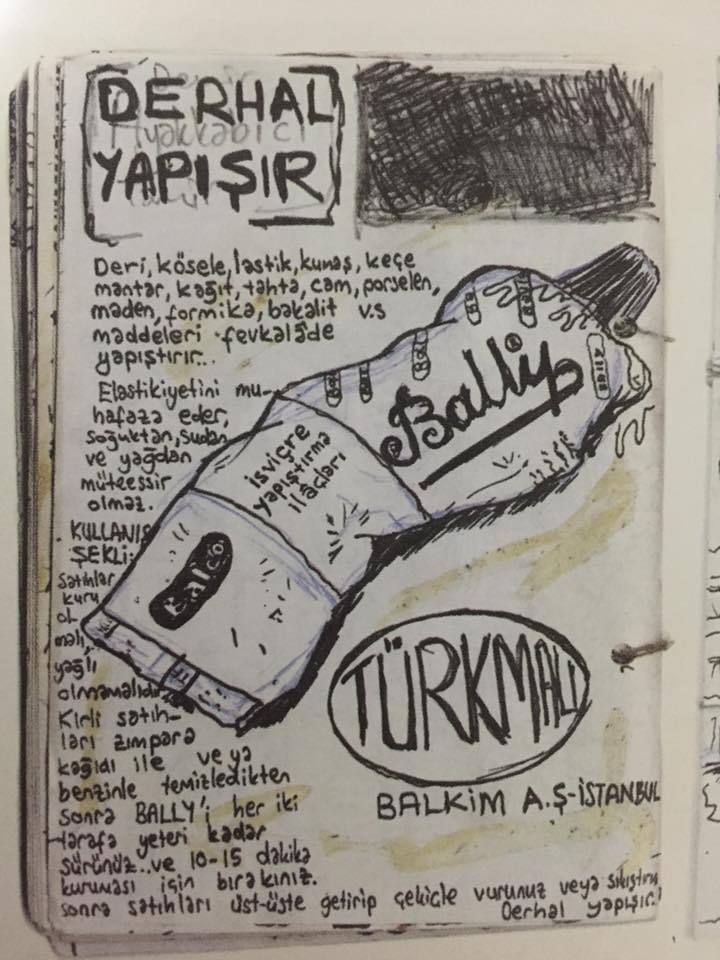 DERHAL
YAPIŞIR
Deri, kösele, lastik, kumaş, keçe
mantar, kağıt, tahta, cam, porselen,
maden, formika, bakalit v.s
maddeleri fevkalâde
yapıştırır...
Elastikiyetini mu-
hafaza eder,
soğuktan, sudan
ve yağdan
müteessir
olmaz.
KULLANIŞ
ŞEKLİ:
Satıhlar
kuru
ol
malı,
yağlı
olmamalıdır
Kirli satıh-
ları zımpara
kağıdı ile ve ya
benzinle temizledikten
sonra BALLY'i her iki
tarafa yeteri kadar
sürünüz..ve 10-15 dakika
kuruması için bırakınız.
sonra satıhları üst-üste getirip çekiçle vurunuz veya sıkıştırın
Derhal yapışır.
Bally
isviçre
yapıştırma
ilâçları
Balco
TÜRKMALI
BALKİM A.Ş-İSTANBUL